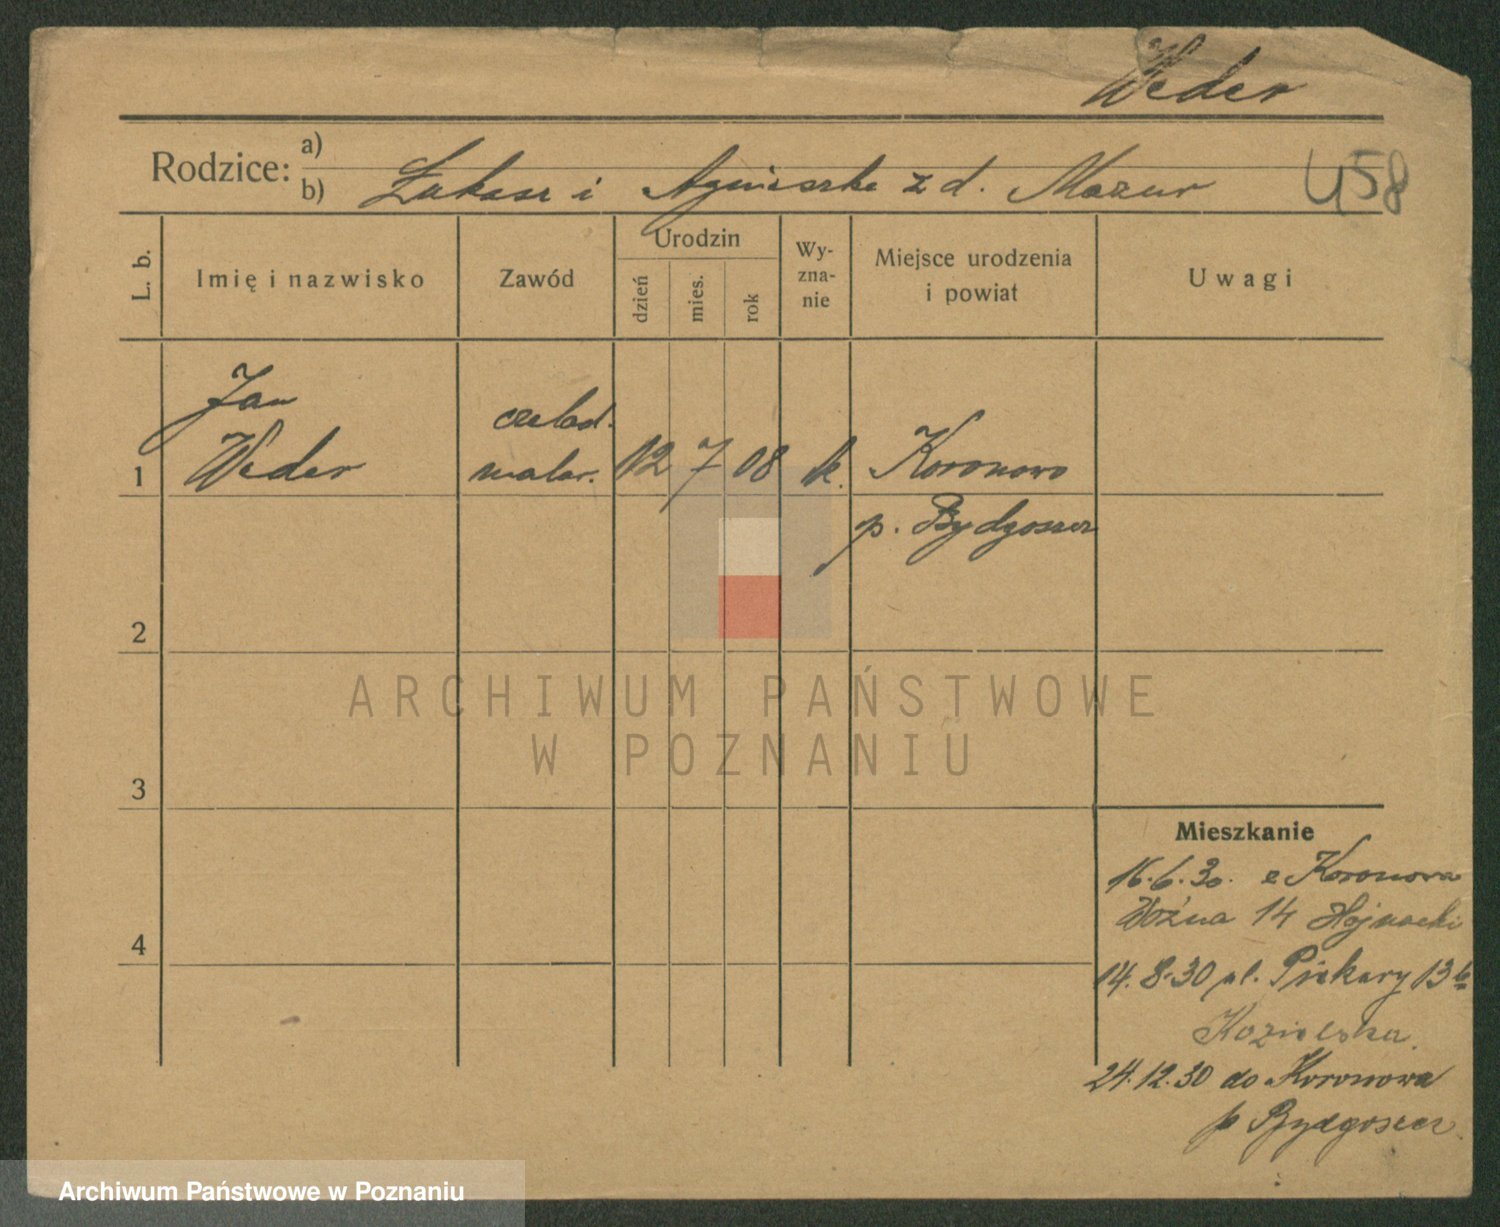 Weder
Rodzice: a)
b) Łukasz i Agnieszka z d. Mazur
458
L. b.
Imię i nazwisko
Zawód
Urodzin
dzień
mies.
rok
Wy-
zna-
nie
Miejsce urodzenia
i powiat
Uwagi
Jan
Weder
czelad.
malar.
1
12 7 08 k. Koronowo
p. Bydgoszcz
2
3
4
Mieszkanie
16.6.30. z Koronowa
Woźna 14 Hojnacki
14.8.30 ul. Piekary 13b
Kozielska
24.12.30 do Koronowa
p Bydgoszcz
ARCHIWUM PAŃSTWOWE
W POZNANIU
Archiwum Państwowe w Poznaniu